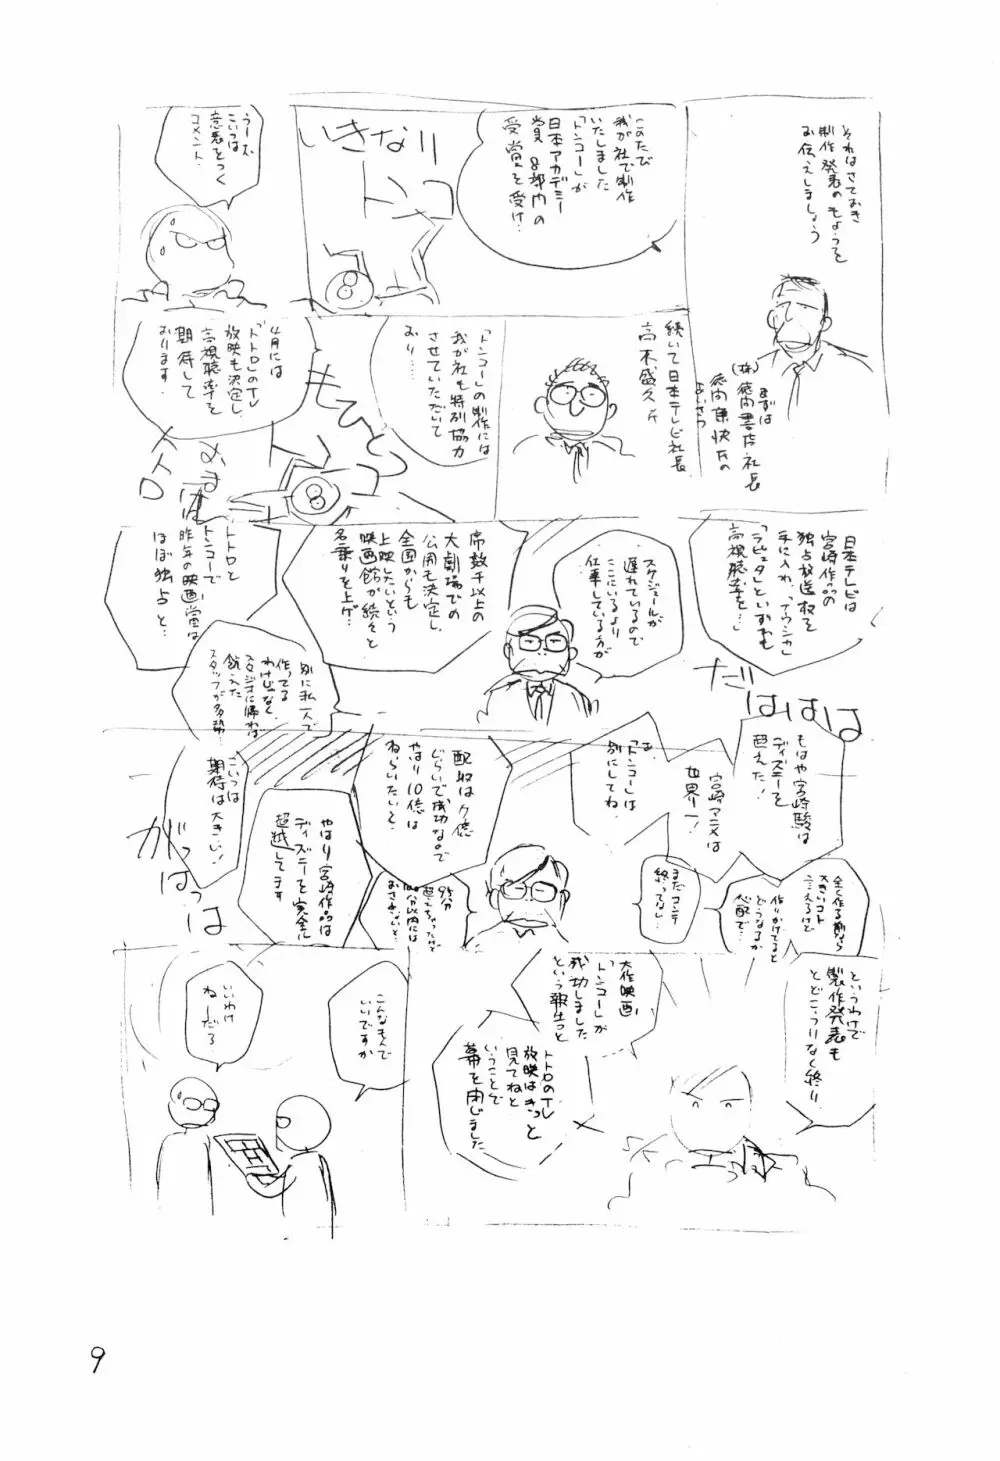 それはさておき
制作発表のもようを
お伝えしましょう
まずは
(株)徳間書店・社長
徳間康快氏の
あいさつ
このたび
我が社で制作
いたしました
「トンコー」が
日本アカデミー
賞8部門の
受賞を受け…
いきなり
トンコ
8
うーーず
こいつは
意表をつく
コメント…
続いて日本テレビ社長
高木盛久氏
「トンコー」の製作には
我が社も特別協力
させていただいて
おり……
もひとつ
8
4月には
「トトロ」のTV
放映も決定し、
高視聴率を
期待して
おります…
トトロ
日本テレビは
宮崎作品の
独占放送権を
手に入れ、「ナウシカ」
「ラピュタ」といずれも
高視聴率を…」
だはははは
スケジュールが
遅れているので
ここにいるより
仕事している方が
席数千以上の
大劇場での
公開も決定し、
全国からも
上映したいという
映画館が続々と
名乗りを上げ…
トトロと
トンコーで
昨年の映画賞は
ほぼ独占と…
別に私一人で
作ってる
わけじゃなく、
スタジオに帰れば
飢えた
スタッフが多勢…
もはや宮崎駿は
ディズニーを
超えた!
宮崎アニメは
世界一!
「トンコー」は
別にしてね
全く作る前から
大きいコト
言えるけど
作りかけてると
どうなるか
心配で…
まだコンテ
終ってない…
配収は7億
ぐらいで成功なので
やはり10億は
ねらいたいと…
95分
超えちゃったけど
100分以内には
おさめないと…
やはり宮崎作品は
ディズニーを完全に
超越してます
こいつは
期待は大きい!
がはっはっは
というわけで
製作発表も
とどこうりなく終り
大作映画
「トンコー」が
成功しました
という報告と
トトロのTV
放映はきっと
見てねと
いうことで
幕を閉じました
こんなもんで
いいですか
いいわけ
ねーだろ
9